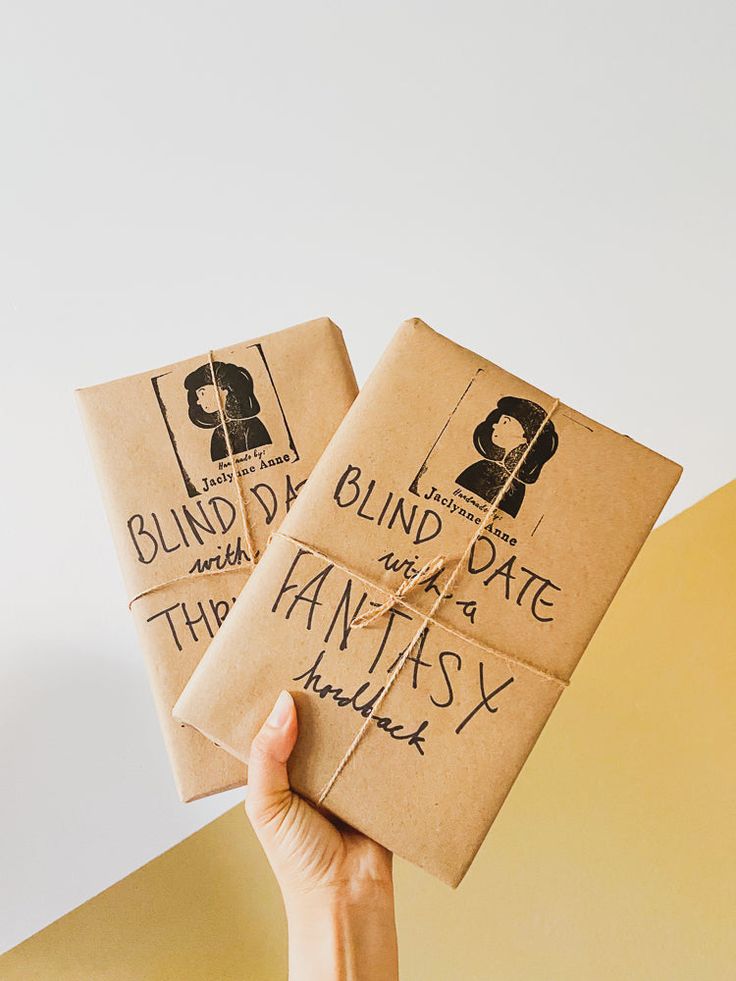 Handmade by:
Jaclynne Anne
BLIND DATE
with
Handmade by:
Jaclynne Anne
BLIND DATE
with a
FANTASY
hardback